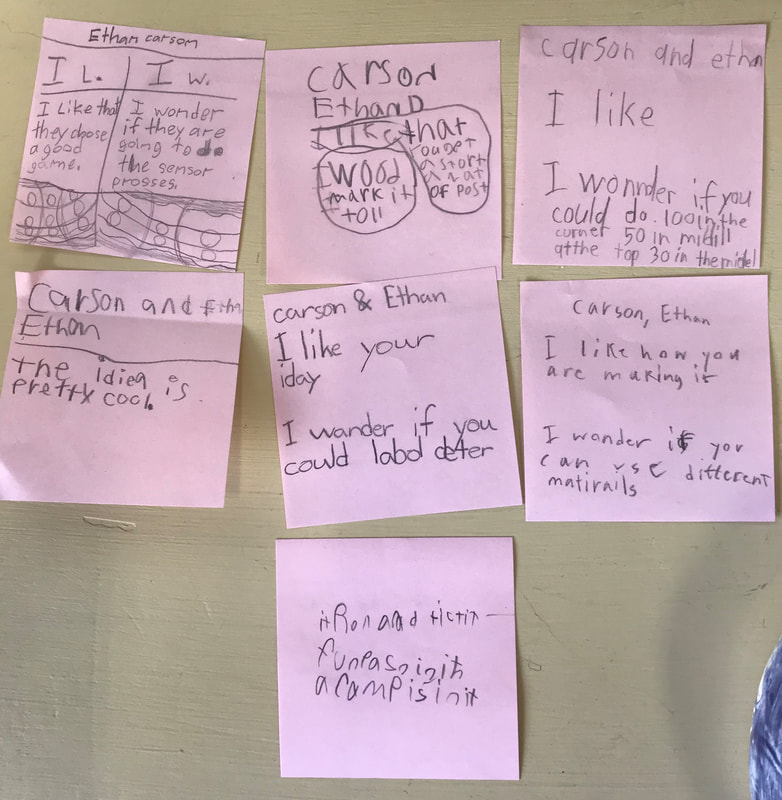 Ethan carson
I L. I w.
I Like that
they chose
a good
game.
I wonder
if they are
going to do
the sensor
prosses.
Carson
Ethan D
I like that
a stort
of post
I wood
mark it
toll
carson and ethan
I like
I wonnder if you
could do. 100 in the
corner 50 in midill
at the top 30 in the midel
Carson and Etha
Ethan
the idiea is.
pretty cool.
carson & Ethan
I like your
iday
I wander if you
could labol deter
Carson, Ethan
I like how you
are making it
I wander if you
can use different
matirails
and
in it
a ramp is in it